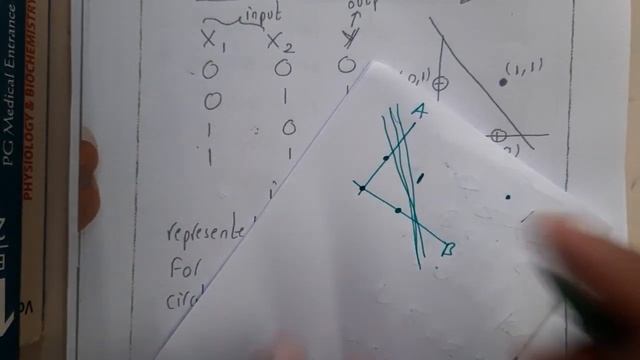 PG Medical Entrance
PHYSIOLOGY & BIOCHEMISTRY
input
X1 X2 Y
0 0 0
0 1
1 0
1 1
(1,1)
A
B
represente
For